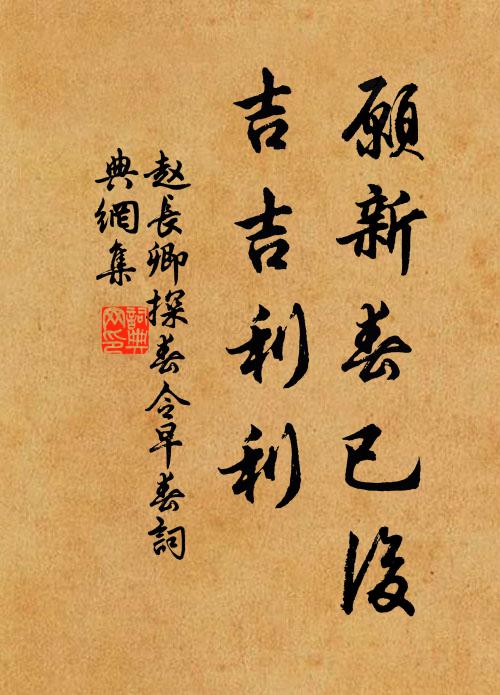 願新春已後
吉吉利利
赵長卿探春令早春詞
典網集
詞典网印